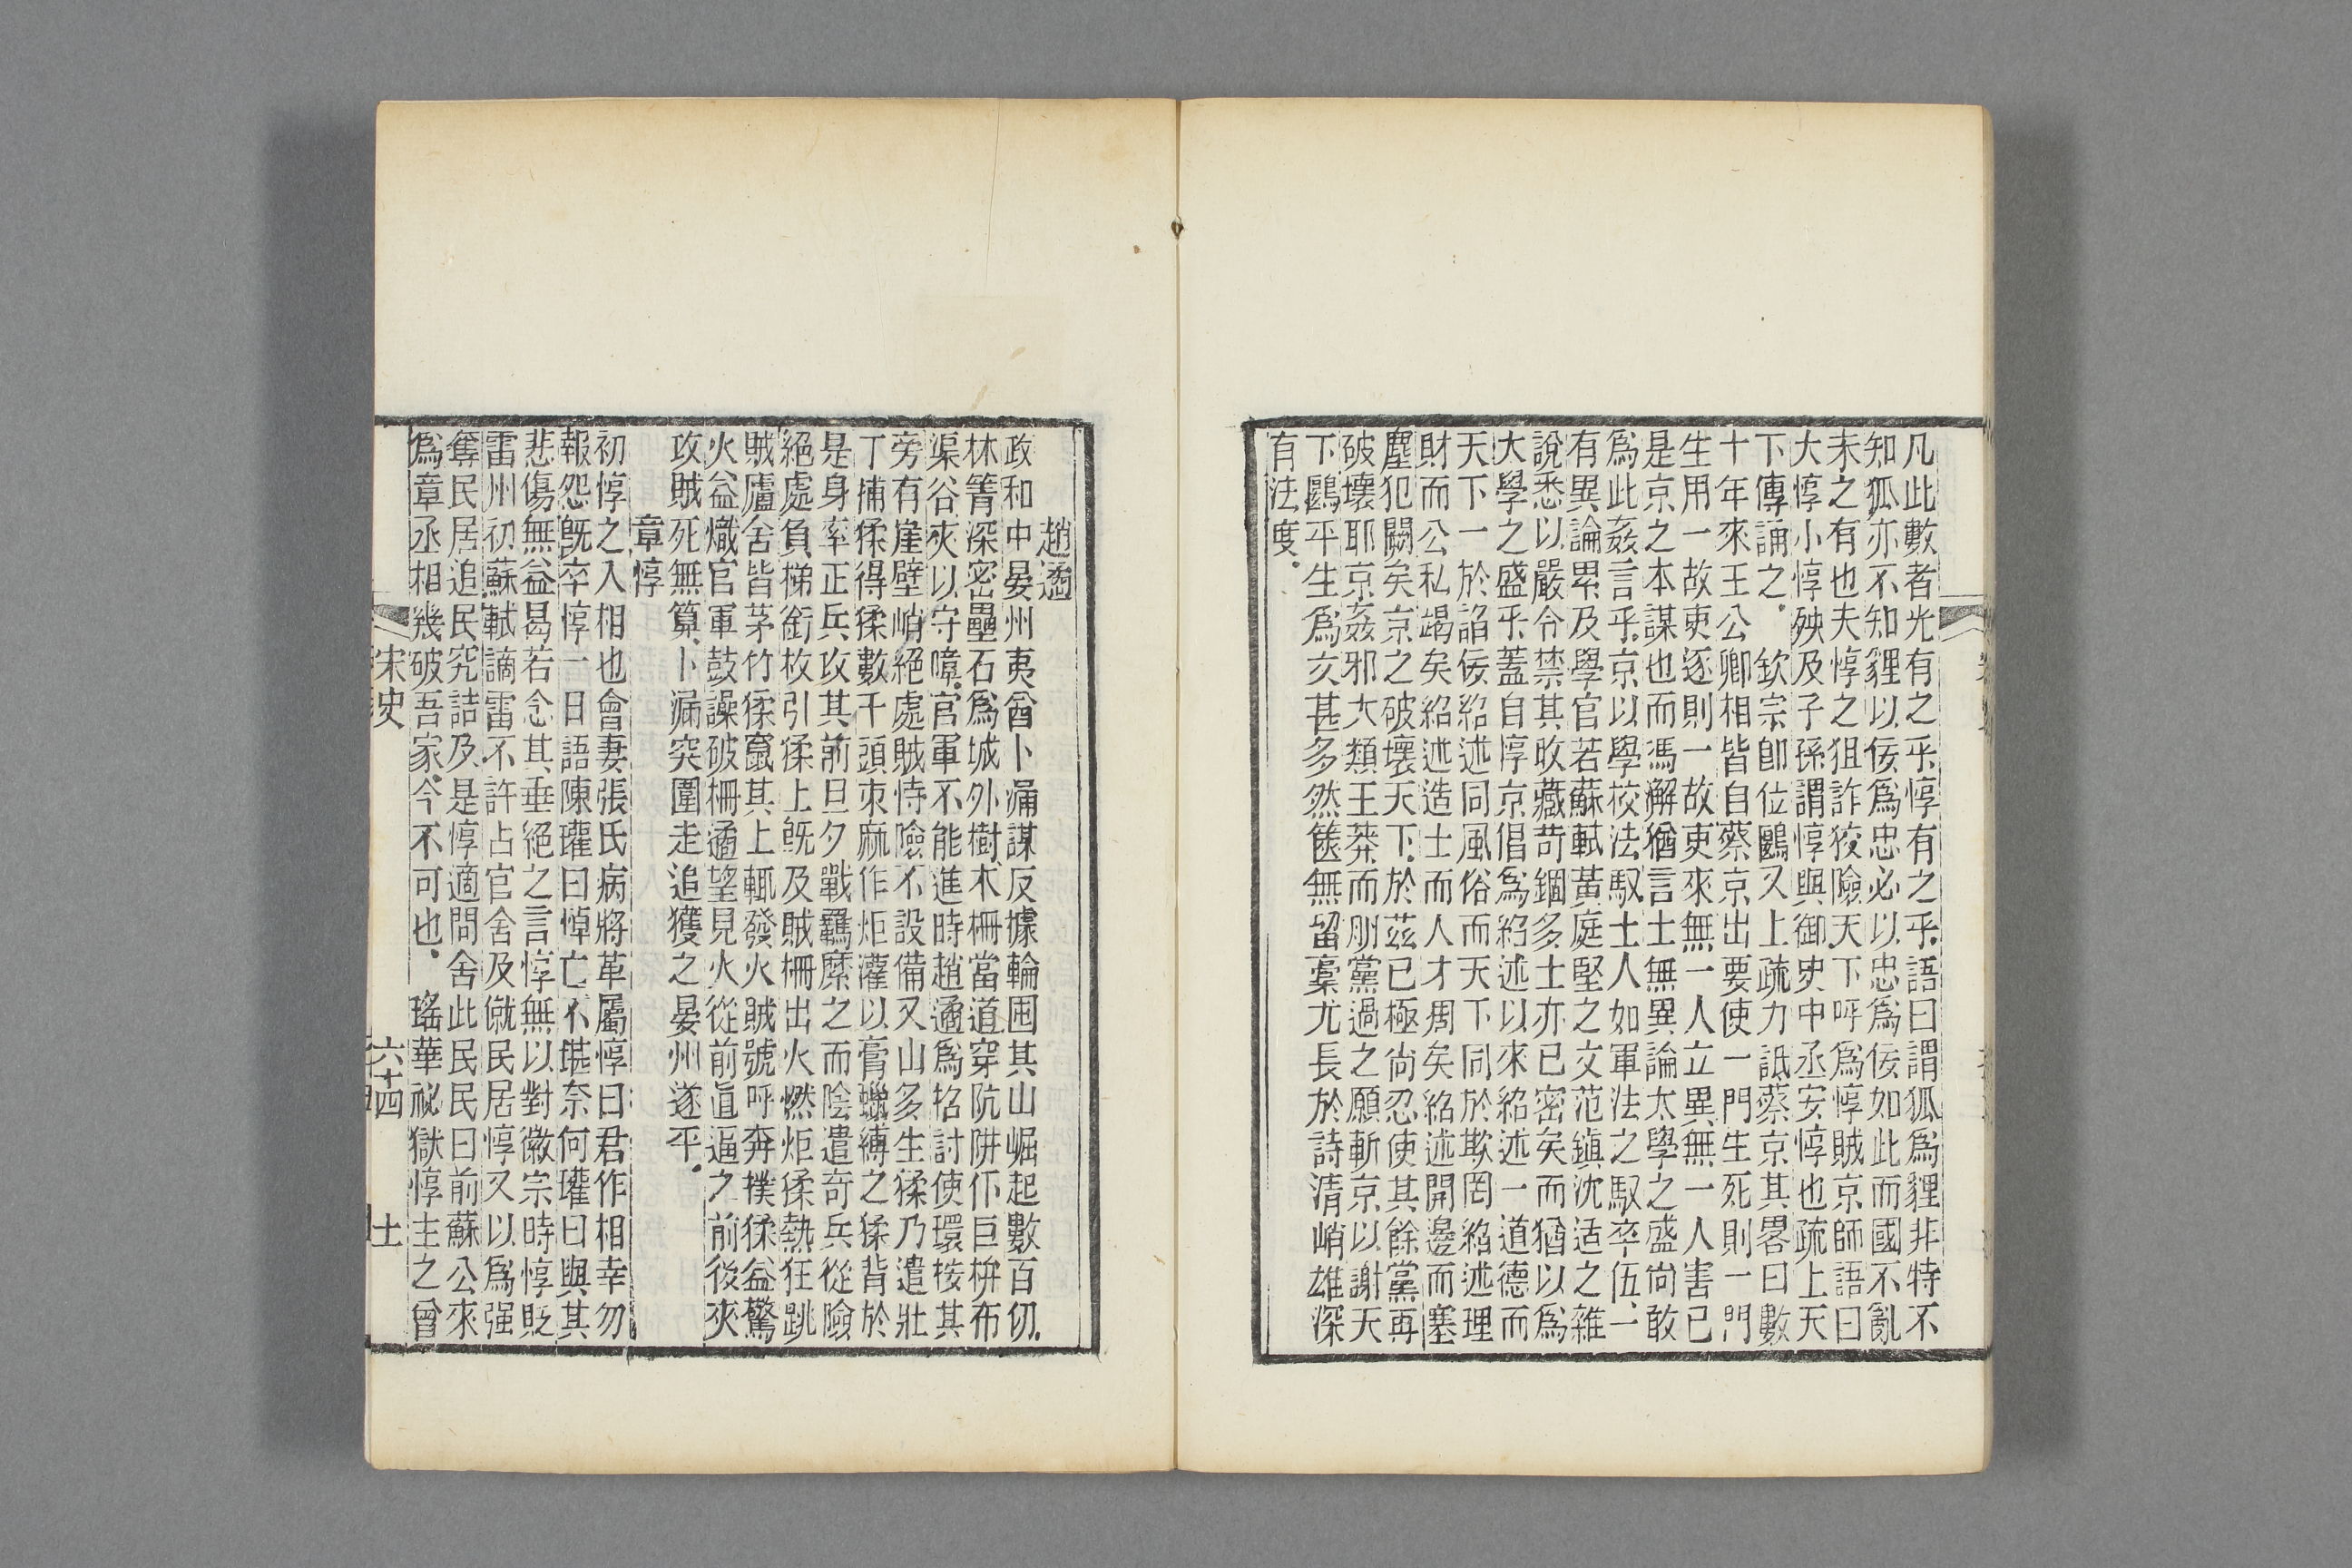 凡此數者光有之乎惇有之乎語曰謂狐爲貍非特不
知狐亦不知貍以佞爲忠必以忠爲佞如此而國不亂
未之有也夫惇之狙詐狡險天下呼爲惇賊京師語曰
大惇小惇殃及子孫謂惇與御史中丞安惇也疏上天
下傳誦之.　欽宗卽位鷗又上疏力詆蔡京其畧曰數
十年來王公卿相皆自蔡京出要使一門生死則一門
生用一故吏逐則一故吏來無一人立異無一人害已
是京之本謀也而馮澥猶言士無異論太學之盛尙敢
爲此姦言乎京以學校法馭士人如軍法之馭卒伍一
有異論累及學官若蘇軾黃庭堅之文范鎭沈适之雜
說悉以嚴令禁其收藏苛錮多士亦已密矣而猶以爲
大學之盛乎蓋自惇京倡爲紹述以來紹述一道德而
天下一於諂佞紹述同風俗而天下同於欺罔紹述理
財而公私竭矣紹述造士而人才凋矣紹述開邊而塞
塵犯闕矣京之破壞天下於茲已極尙忍使其餘黨再
破壞耶京姦邪大類王莽而朋黨過之願斬京以謝天
下鷗平生爲文甚多然篋無留稾尤長於詩清峭雄深
有法度.
趙遹
政和中晏州夷酋卜漏謀反據輪囤其山崛起數百仞
林箐深密壘石爲城外樹木柵當道穿阬阱仆巨枿布
渠谷夾以守嶂官軍不能進時趙遹爲招討使環按其
旁有崖壁峭絕處賊恃險不設備又山多生猱乃遣壯
丁捕猱得猱數千頭束麻作炬灌以膏蠟縛之猱背於
是身率正兵攻其前旦夕戰羈縻之而陰遣奇兵從險
絕處負梯銜枚引猱上旣及賊柵出火燃炬猱熱狂跳
賊廬舍皆茅竹猱竄其上輒發火賊號呼奔撲猱益驚
火益熾官軍鼓譟破柵遹望見火從前直逼之前後夾
攻賊死無算卜漏突圍走追獲之晏州遂平.
章惇
初惇之入相也會妻張氏病將革屬惇曰君作相幸勿
報怨旣卒惇一日語陳瓘曰悼亡不堪奈何瓘曰與其
悲傷無益曷若念其垂絕之言惇無以對徽宗時惇貶
雷州初蘇軾謫雷不許占官舍及僦民居惇又以爲强
奪民居追民究詰及是惇適問舍此民民曰前蘇公來
爲章丞相幾破吾家今不可也.　瑤華祕獄惇主之曾
宋史
六十四